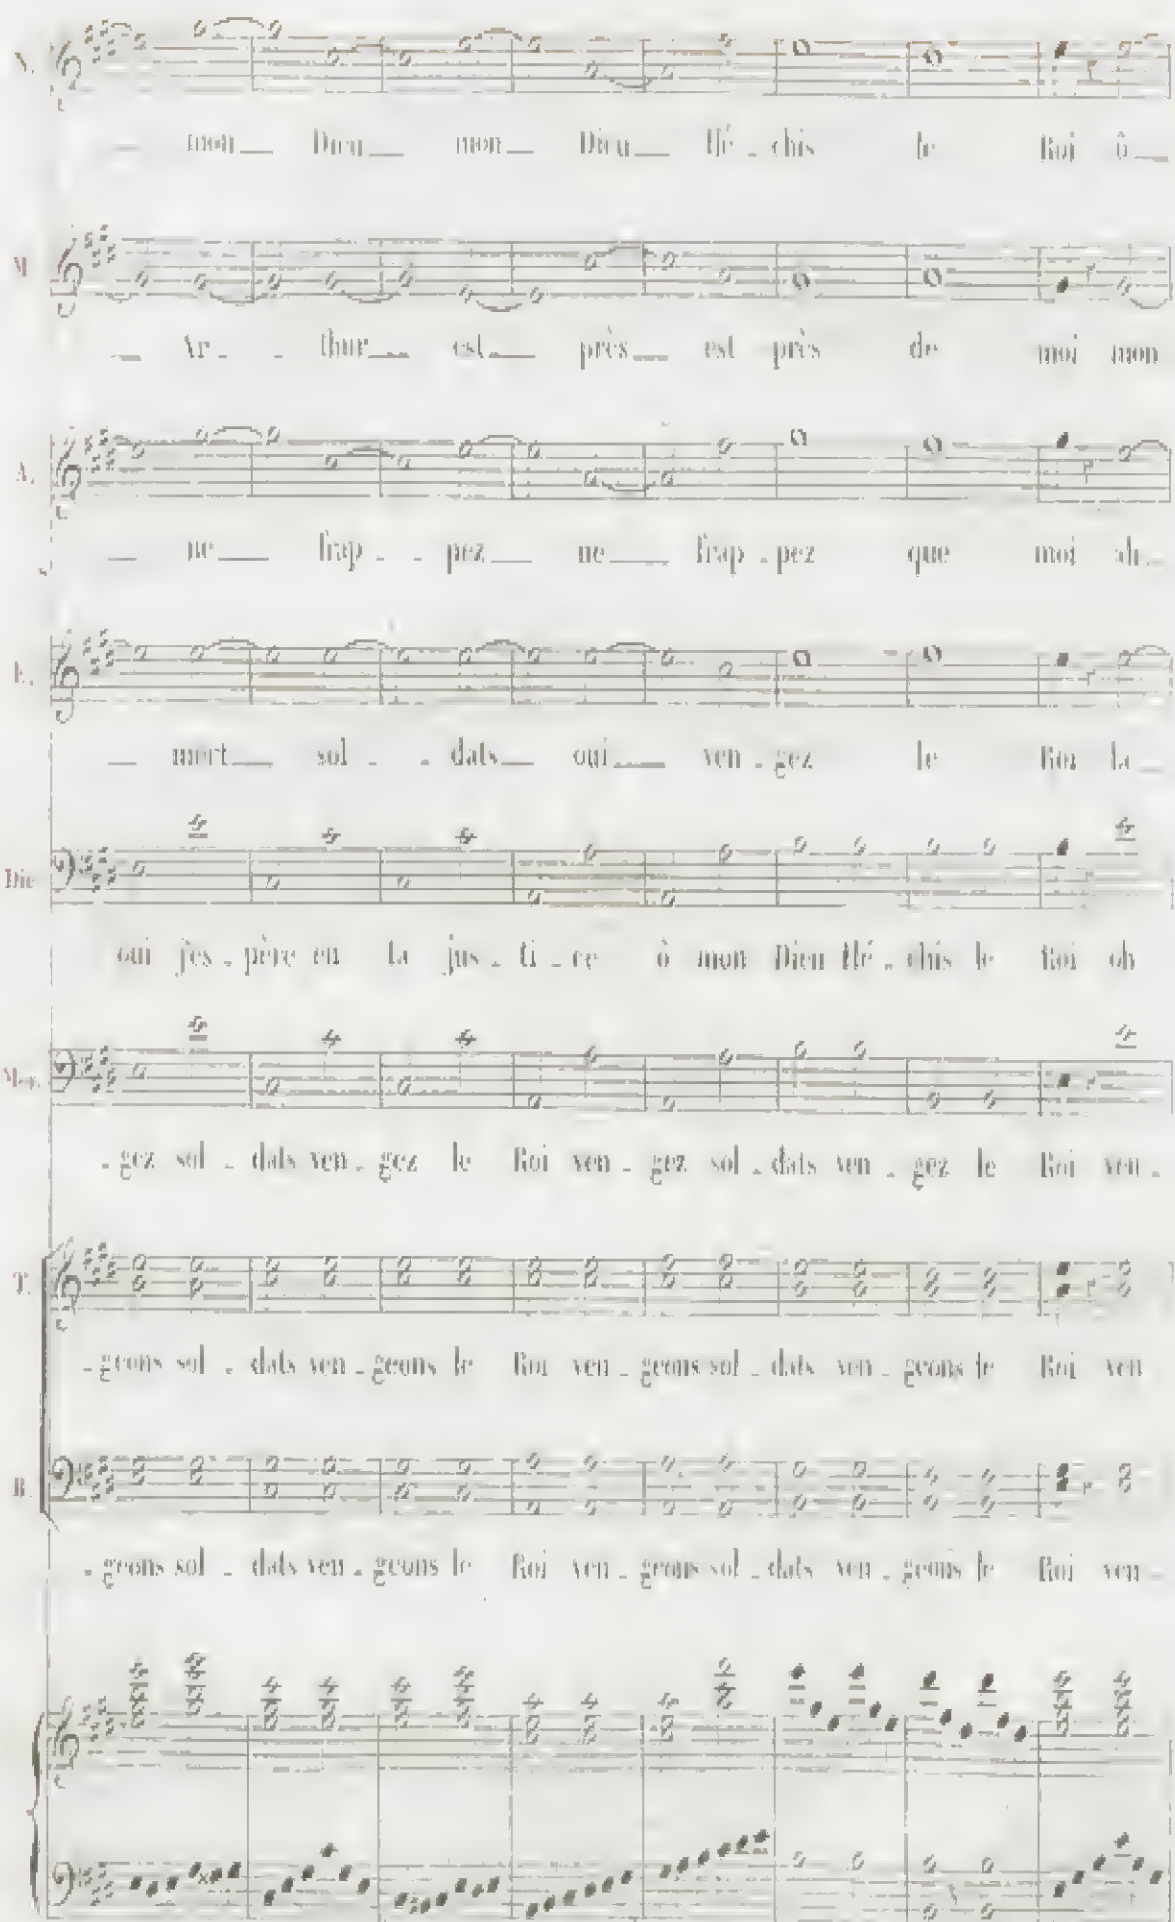 N.
mon Dieu mon Dieu flé - chis le Roi ô
M
Ar - - thur est près est près de moi mon
A.
ne frap - - pez ne frap - pez que moi ah
E.
mort sol - - dats oui ven - gez le Roi la
Die
oui j'es - père en ta jus - ti - ce ô mon Dieu flé - chis le Roi oh
- gez sol - dats ven - gez le Roi ven - gez sol - dats ven - gez le Roi ven -
T.
- geons sol - dats ven - geons le Roi ven - geons sol - dats ven - geons le Roi ven
B.
- geons sol - dats ven - geons le Roi ven - geons sol - dats ven - geons le Roi ven -